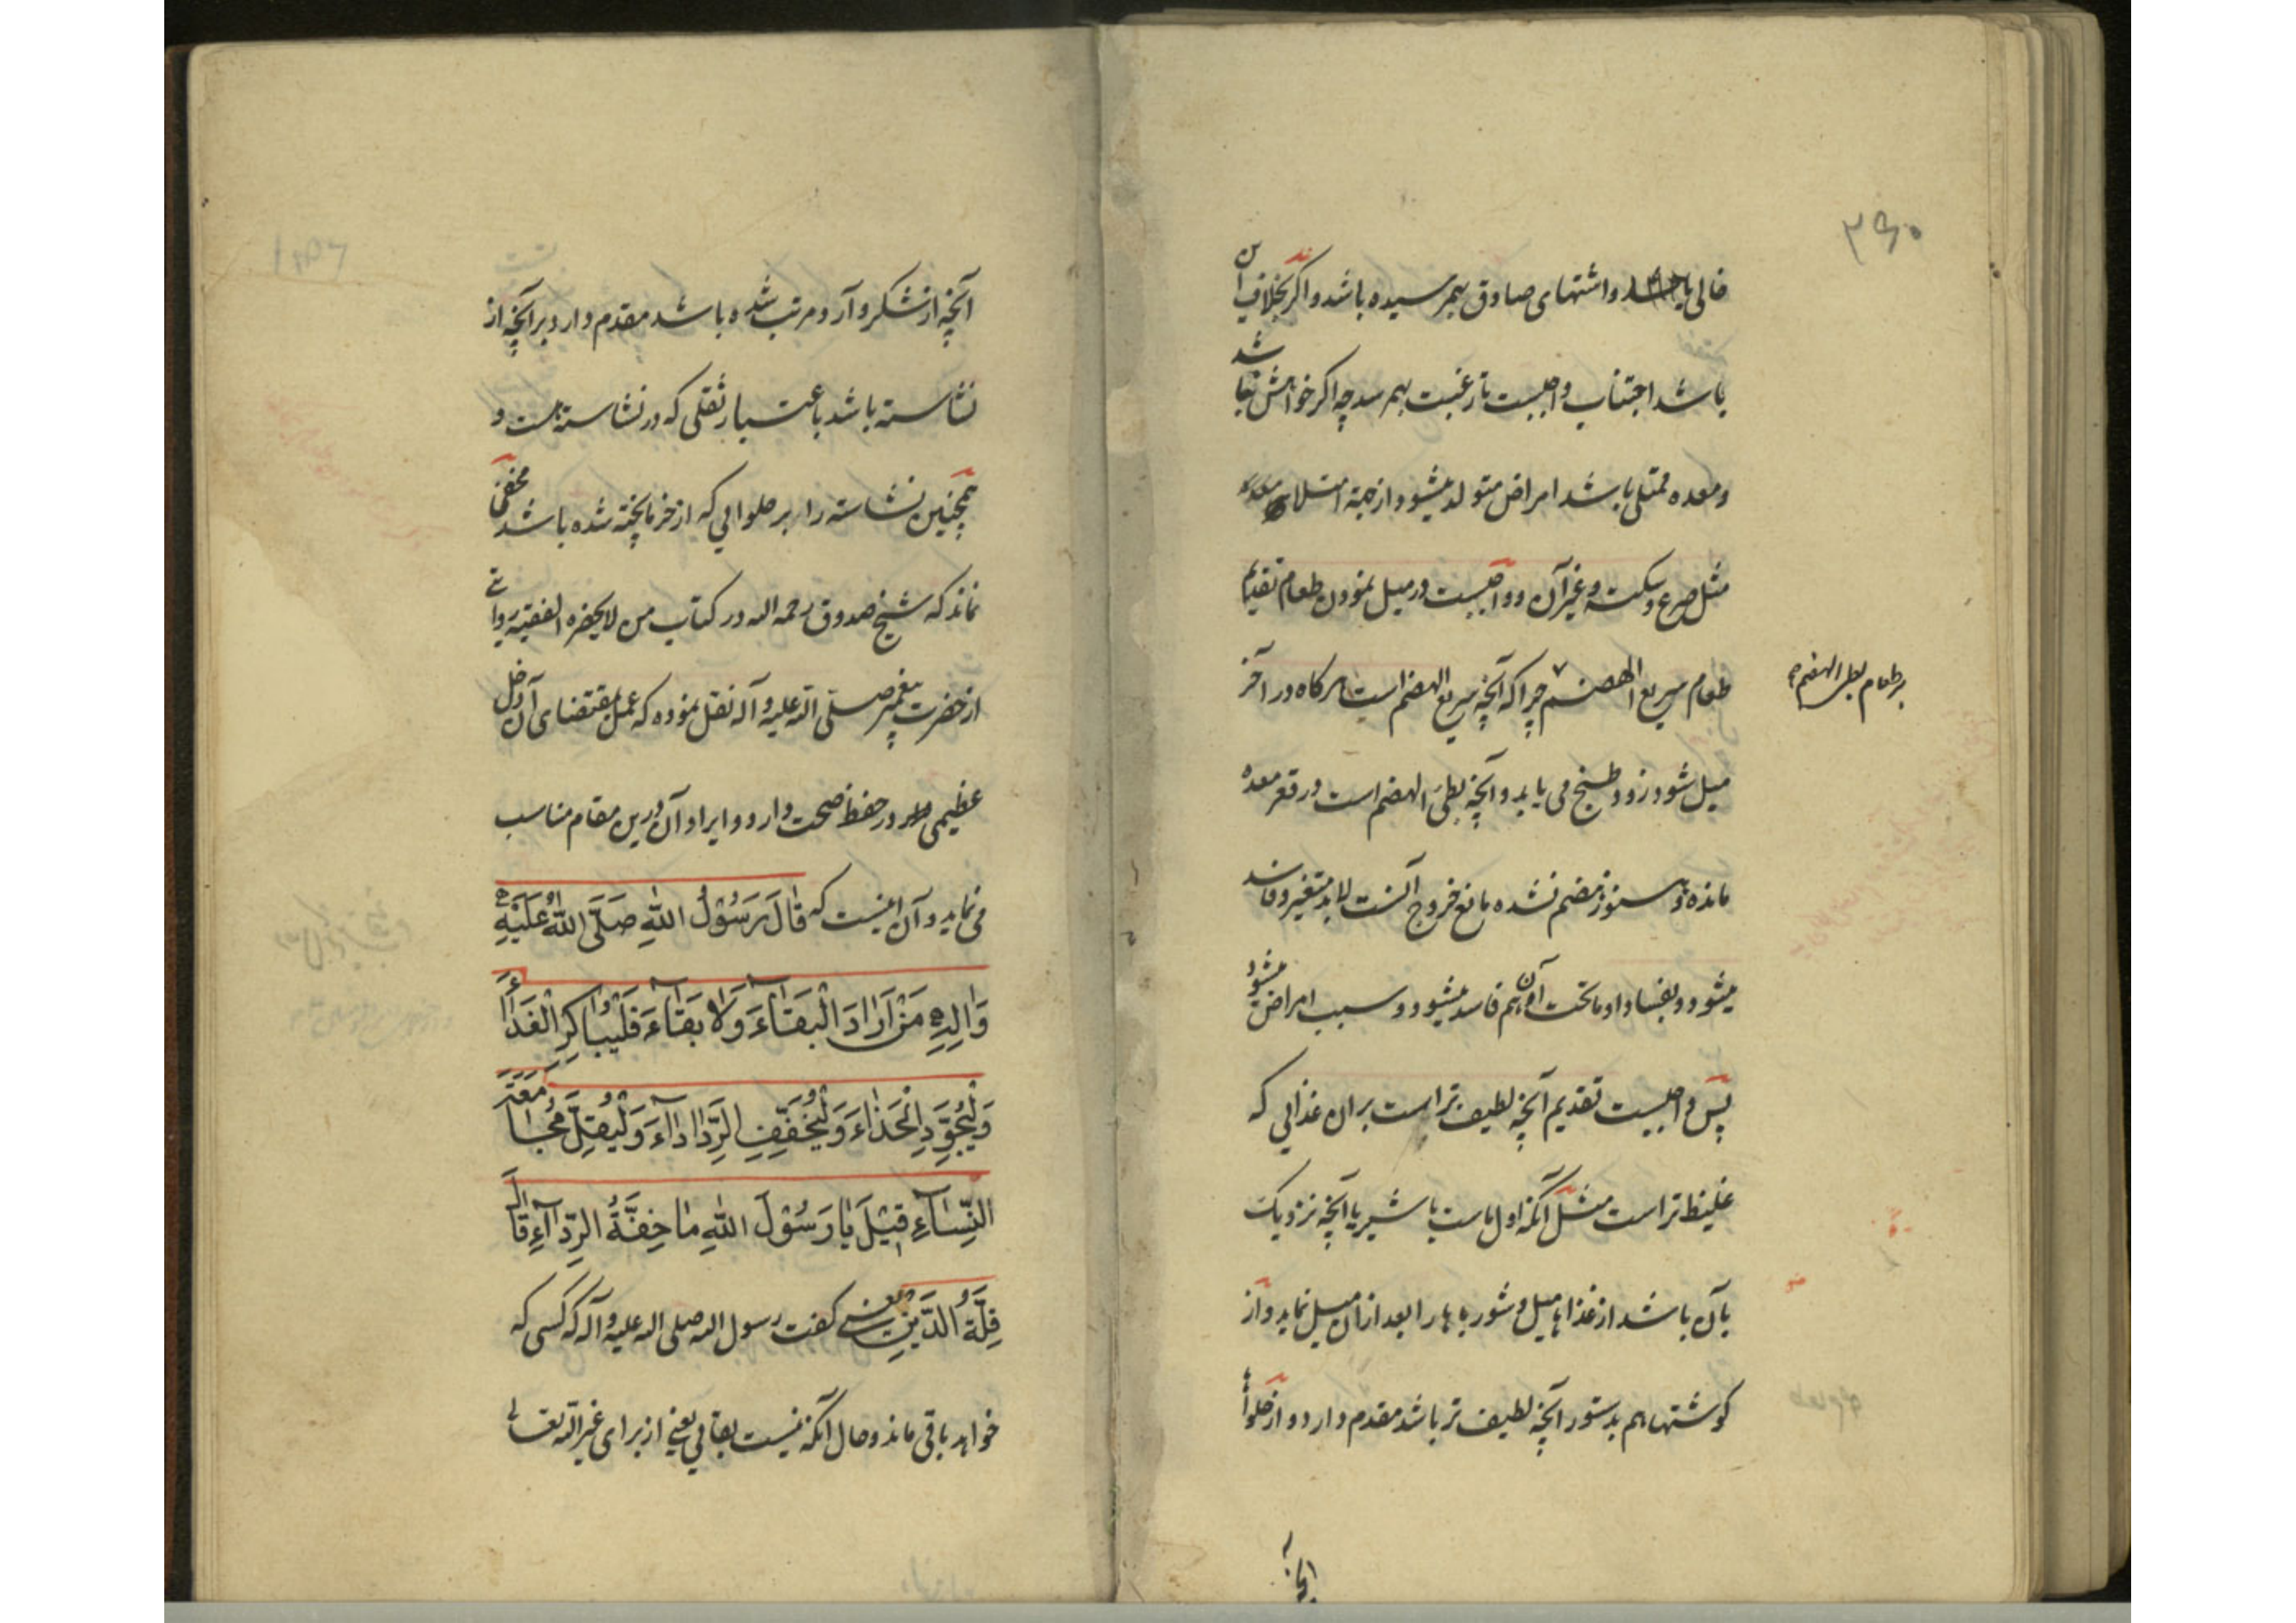 ۳۶۰
خالی باشد و اشتهای صادق بهمرسیده باشد و اکر بخلاف این
باشد اجتناب واجبست تا رغبت بهم رسد چه اکر خواهش نباشد
و معده ممتلی باشد امراض متولد میشود از جهة امتلای معده
مثل صرع و سکته و غیر آن و واجبست در میل نمودن طعام تقدیم
طعام سریع الهضم چرا که آنچه سریع الهضم است هرکاه در آخر
بر طعام بطی الهضم
میل شود زود طبخ می یابد و آنچه بطئ الهضم است در قعر معده
مانده و هنوز هضم نشده مانع خروج آنست لابد متغیر و فاسد
میشود و بفساد او ماتحت آن هم فاسد میشود و سبب امراض میشود
پس واجبست تقدیم آنچه لطیف تر است بر ان غذائی که
غلیظ تر است مثل آنکه اول ماست یا شیر یا آنچه نزدیک
بآن باشد از غذاها میل و شورباها را بعد از آن میل نماید و از
کوشتها هم بدستور آنچه لطیف تر باشد مقدم دارد و از حلواها
آنچه
آنچه از شکر و آرد مرتب شده باشد مقدم دارد بر آنچه از
نشاسته باشد باعتبار ثقلی که در نشاسته هست و
همچنین نشاسته را بر حلوائی که از خرما پخته شده باشد مخفی
نماند که شیخ صدوق رحمه الله در کتاب من لا یحضره الفقیه روایتی
از حضرت پیغمبر صلی الله علیه و آله نقل نموده که عمل بمقتضای آن دخل
عظیمی در حفظ صحت دارد و ایراد آن درین مقام مناسب
می نماید و آن اینست که قَالَ رَسُوْلُ اللهِ صَلَّی اللهُ عَلَیْهِ
وَالِهِ مَنْ اَرَادَ الْبَقَآءَ وَلَا بَقَآءَ فَلْیُبَاکِرِ الْغَدَآءَ
وَلْیُجَوِّدِ الْحَذَآءَ وَلْیُخَفِّفِ الرِّدَآءَ وَلْیُقِلَّ مُجَامَعَةَ
النِّسَآءِ قِیْلَ یَا رَسُوْلَ اللهِ مَا خِفَّةُ الرِّدَآءِ قَالَ
قِلَّةُ الدَّیْنِ یعنی کفت رسول الله صلی الله علیه و آله که کسی که
خواهد باقی ماند و حال آنکه نیست بقائی یعنی از برای غیر الله تعالی